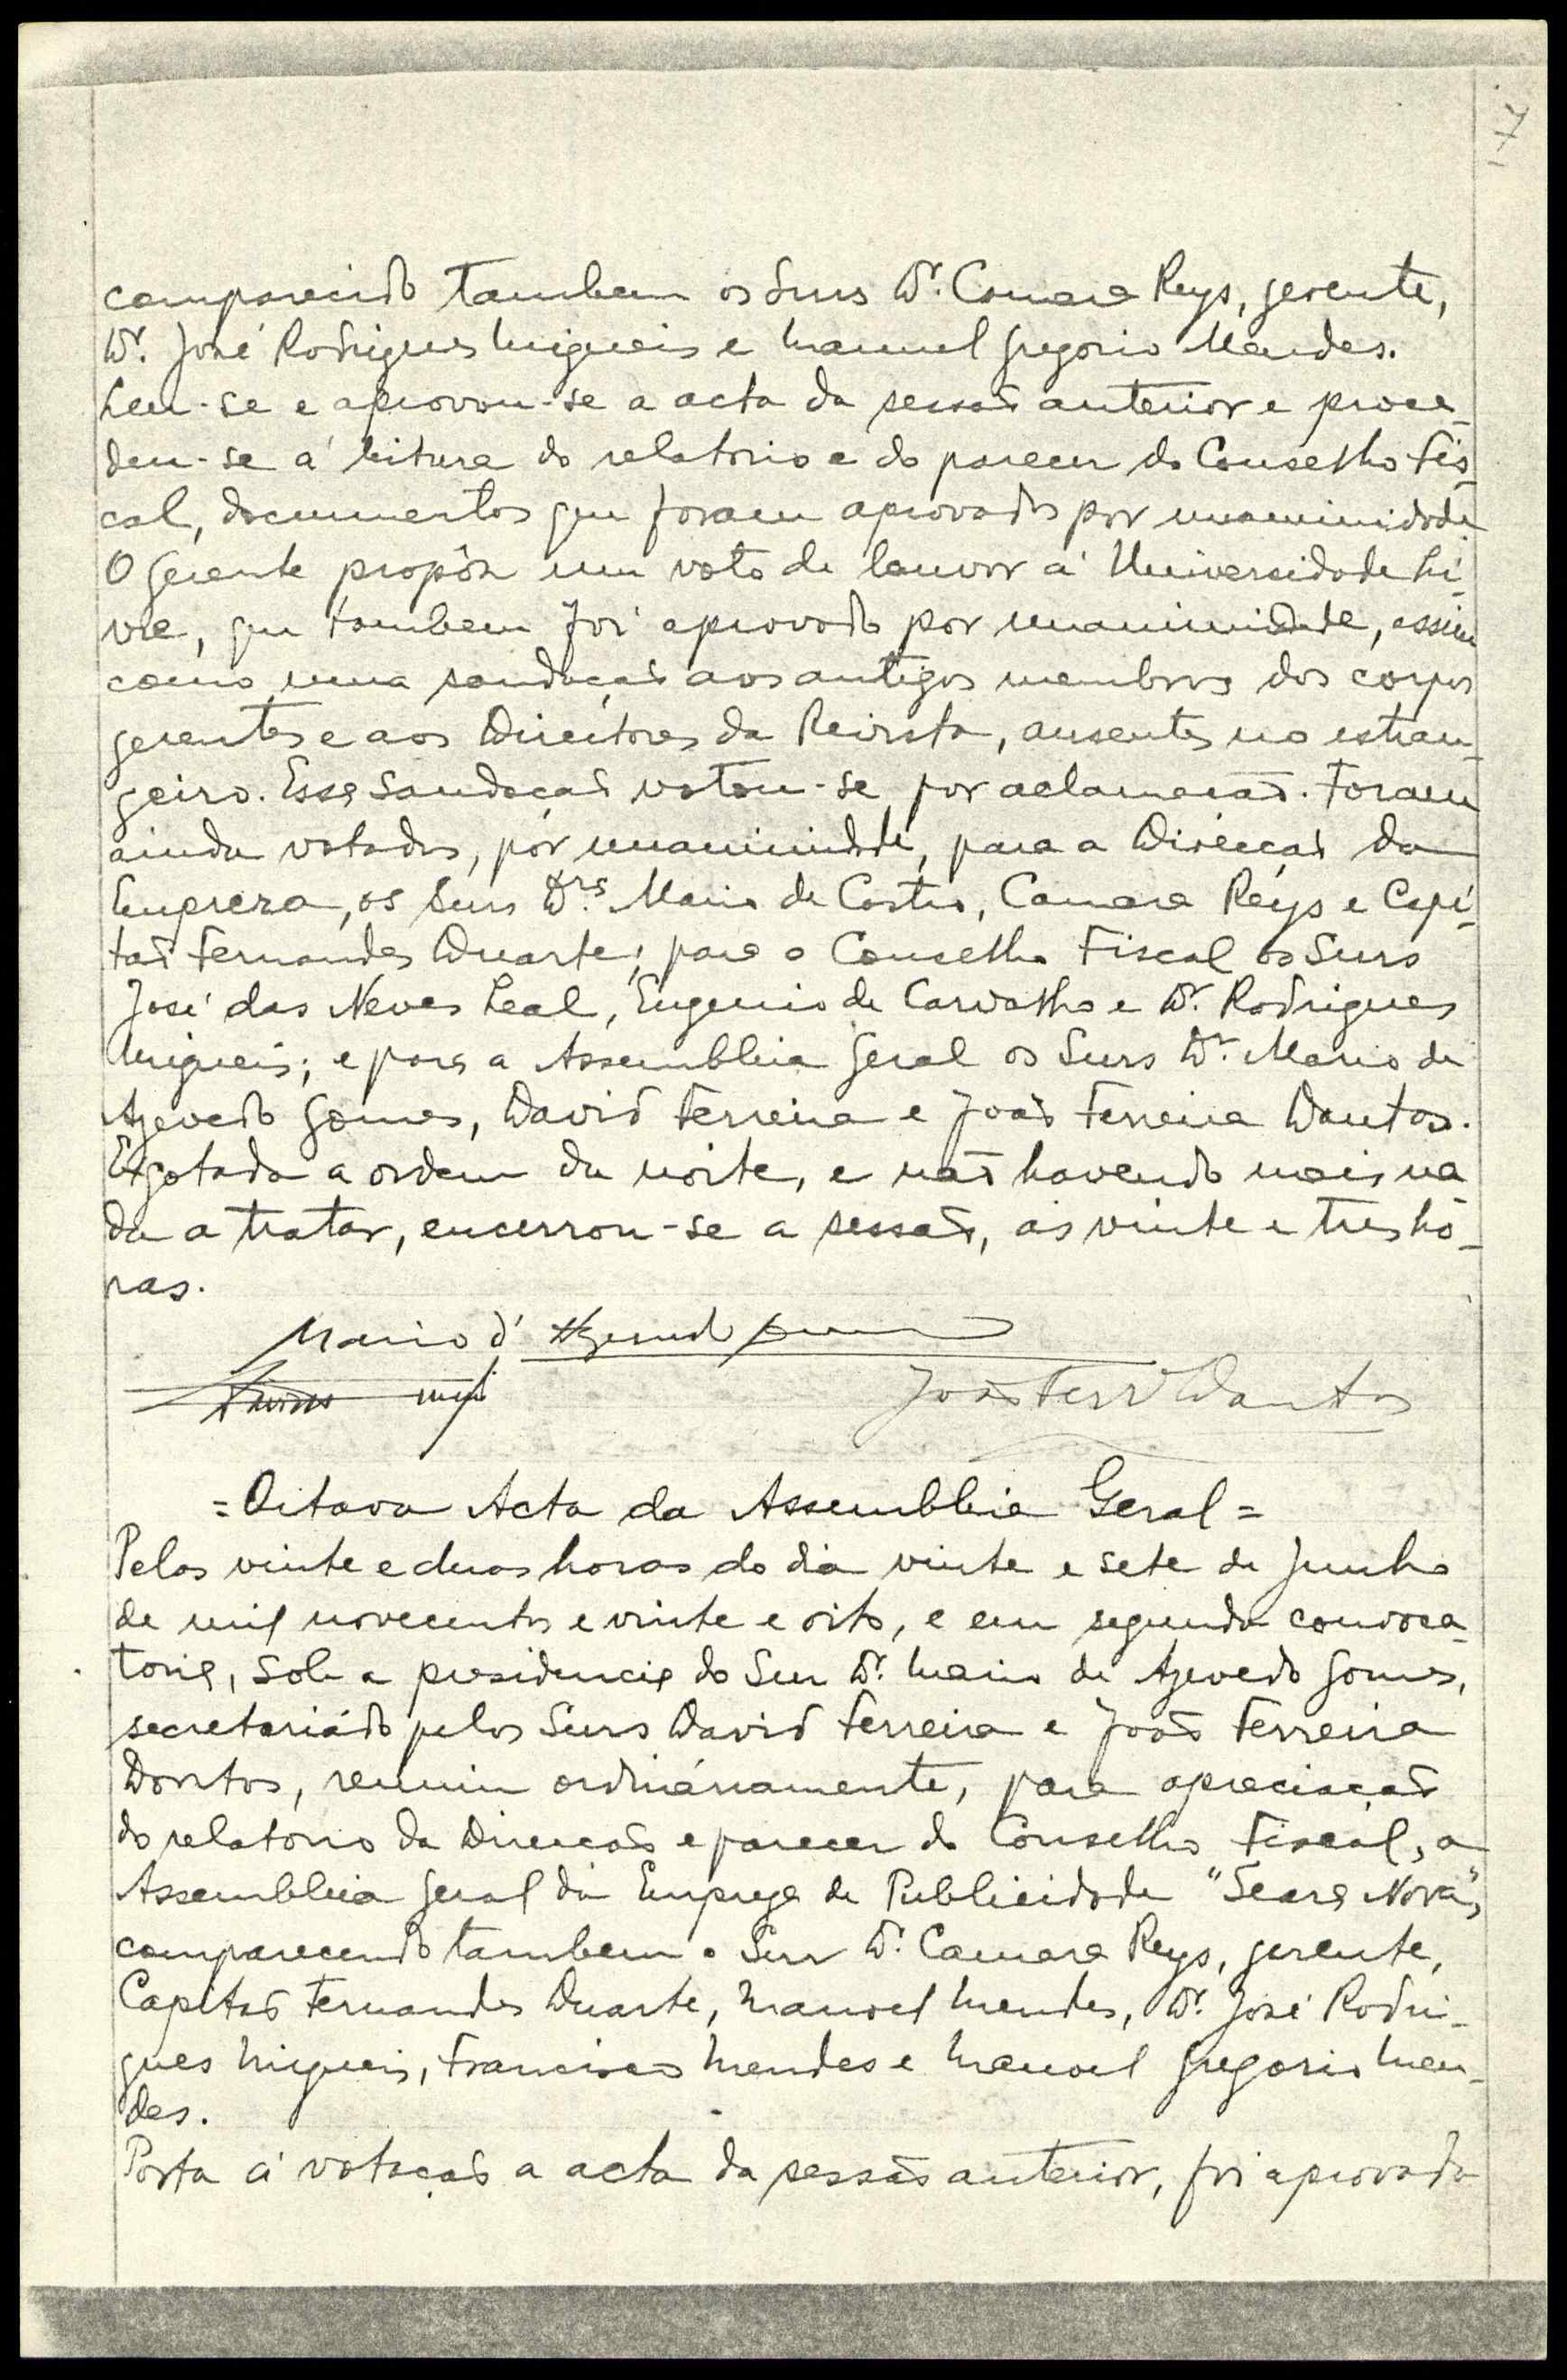 comparecido tambem os Snrs Dr. Camara Reys, gerente,
Dr. José Rodrigues Migueis e Manuel Gregorio Mendes.
Leu-se e aprovou-se a acta da sessão anterior e proce-
deu-se á leitura do relatorio e do parecer do Conselho Fis-
cal, documentos que foram aprovados por unanimidade
O gerente propôz um voto de louvor á Universidade Li-
vre, que tambem foi aprovado por unanimidade, assim
como uma saudação aos antigos membros dos corpos
gerentes e aos Directores da Revista, ausentes no estran-
geiro. Essa saudação votou-se por aclamação. Foram
ainda votados, por unanimidade, para a Direcção da
Empreza, os Snrs Drs. Mario de Castro, Camara Reys e Capi-
tão Fernandes Duarte; para o Conselho Fiscal os Snrs
José das Neves Leal, Eugenio de Carvalho e Dr. Rodrigues
Migueis; e para a Assembleia Geral os Snrs Dr. Mario de
Azevedo Gomes, David Ferreira e João Ferreira Dantas.
Exgotada a ordem da noite, e não havendo mais na-
da a tratar, encerrou-se a sessão, ás vinte e tres ho-
ras.
Mario d'Azevedo Gomes
João Ferra Dantas
=Oitava Acta da Assembleia Geral=
Pelas vinte e duas horas do dia vinte e sete de Junho
de mil novecentos e vinte e oito, e em segunda convoca-
toria, sob a presidencia do Snr Dr. Mario de Azevedo Gomes,
secretariádo pelos Snrs David Ferreira e João Ferreira
Dantas, reuniu ordináriamente, para apreciação
do relatorio da Direcção e parecer do Conselho Fiscal, a
Assembleia Geral da Empreza de Publicidade "Seara Nova",
comparecendo tambem o Snr Dr. Camara Reys, gerente,
Capitão Fernandes Duarte, Manoel Mendes, Dr. José Rodri-
gues Migueis, Francisco Mendes e Manoel Gregorio Men-
des.
Posta á votação a acta da sessão anterior, foi aprovada